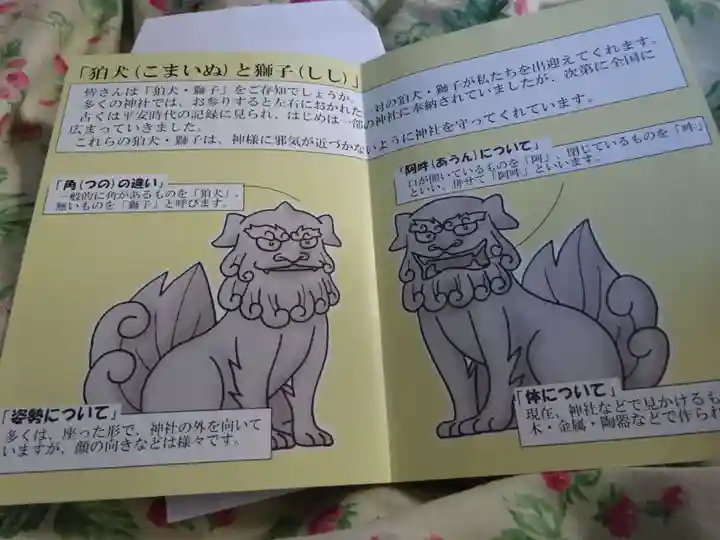 「狛犬(こまいぬ)と獅子(しし)」
皆さんは「狛犬・獅子」をご存知でしょうか。
多くの神社では、お参りすると左右におかれた一対の狛犬・獅子が私たちを出迎えてくれます。
古くは平安時代の記録に見られ、はじめは一部の神社に奉納されていましたが、次第に全国に
広まっていきました。
これらの狛犬・獅子は、神様に邪気が近づかないように神社を守ってくれています。
「角(つの)の違い」
一般的に角があるものを「狛犬」、
無いものを「獅子」と呼びます。
「阿吽(あうん)について」
口が開いているものを「阿」、閉じているものを「吽」
といい、併せて「阿吽」といいます。
「姿勢について」
多くは、座った形で、神社の外を向いて
いますが、顔の向きなどは様々です。
「体について」
現在、神社などで見かけるも
木・金属・陶器などで作られ